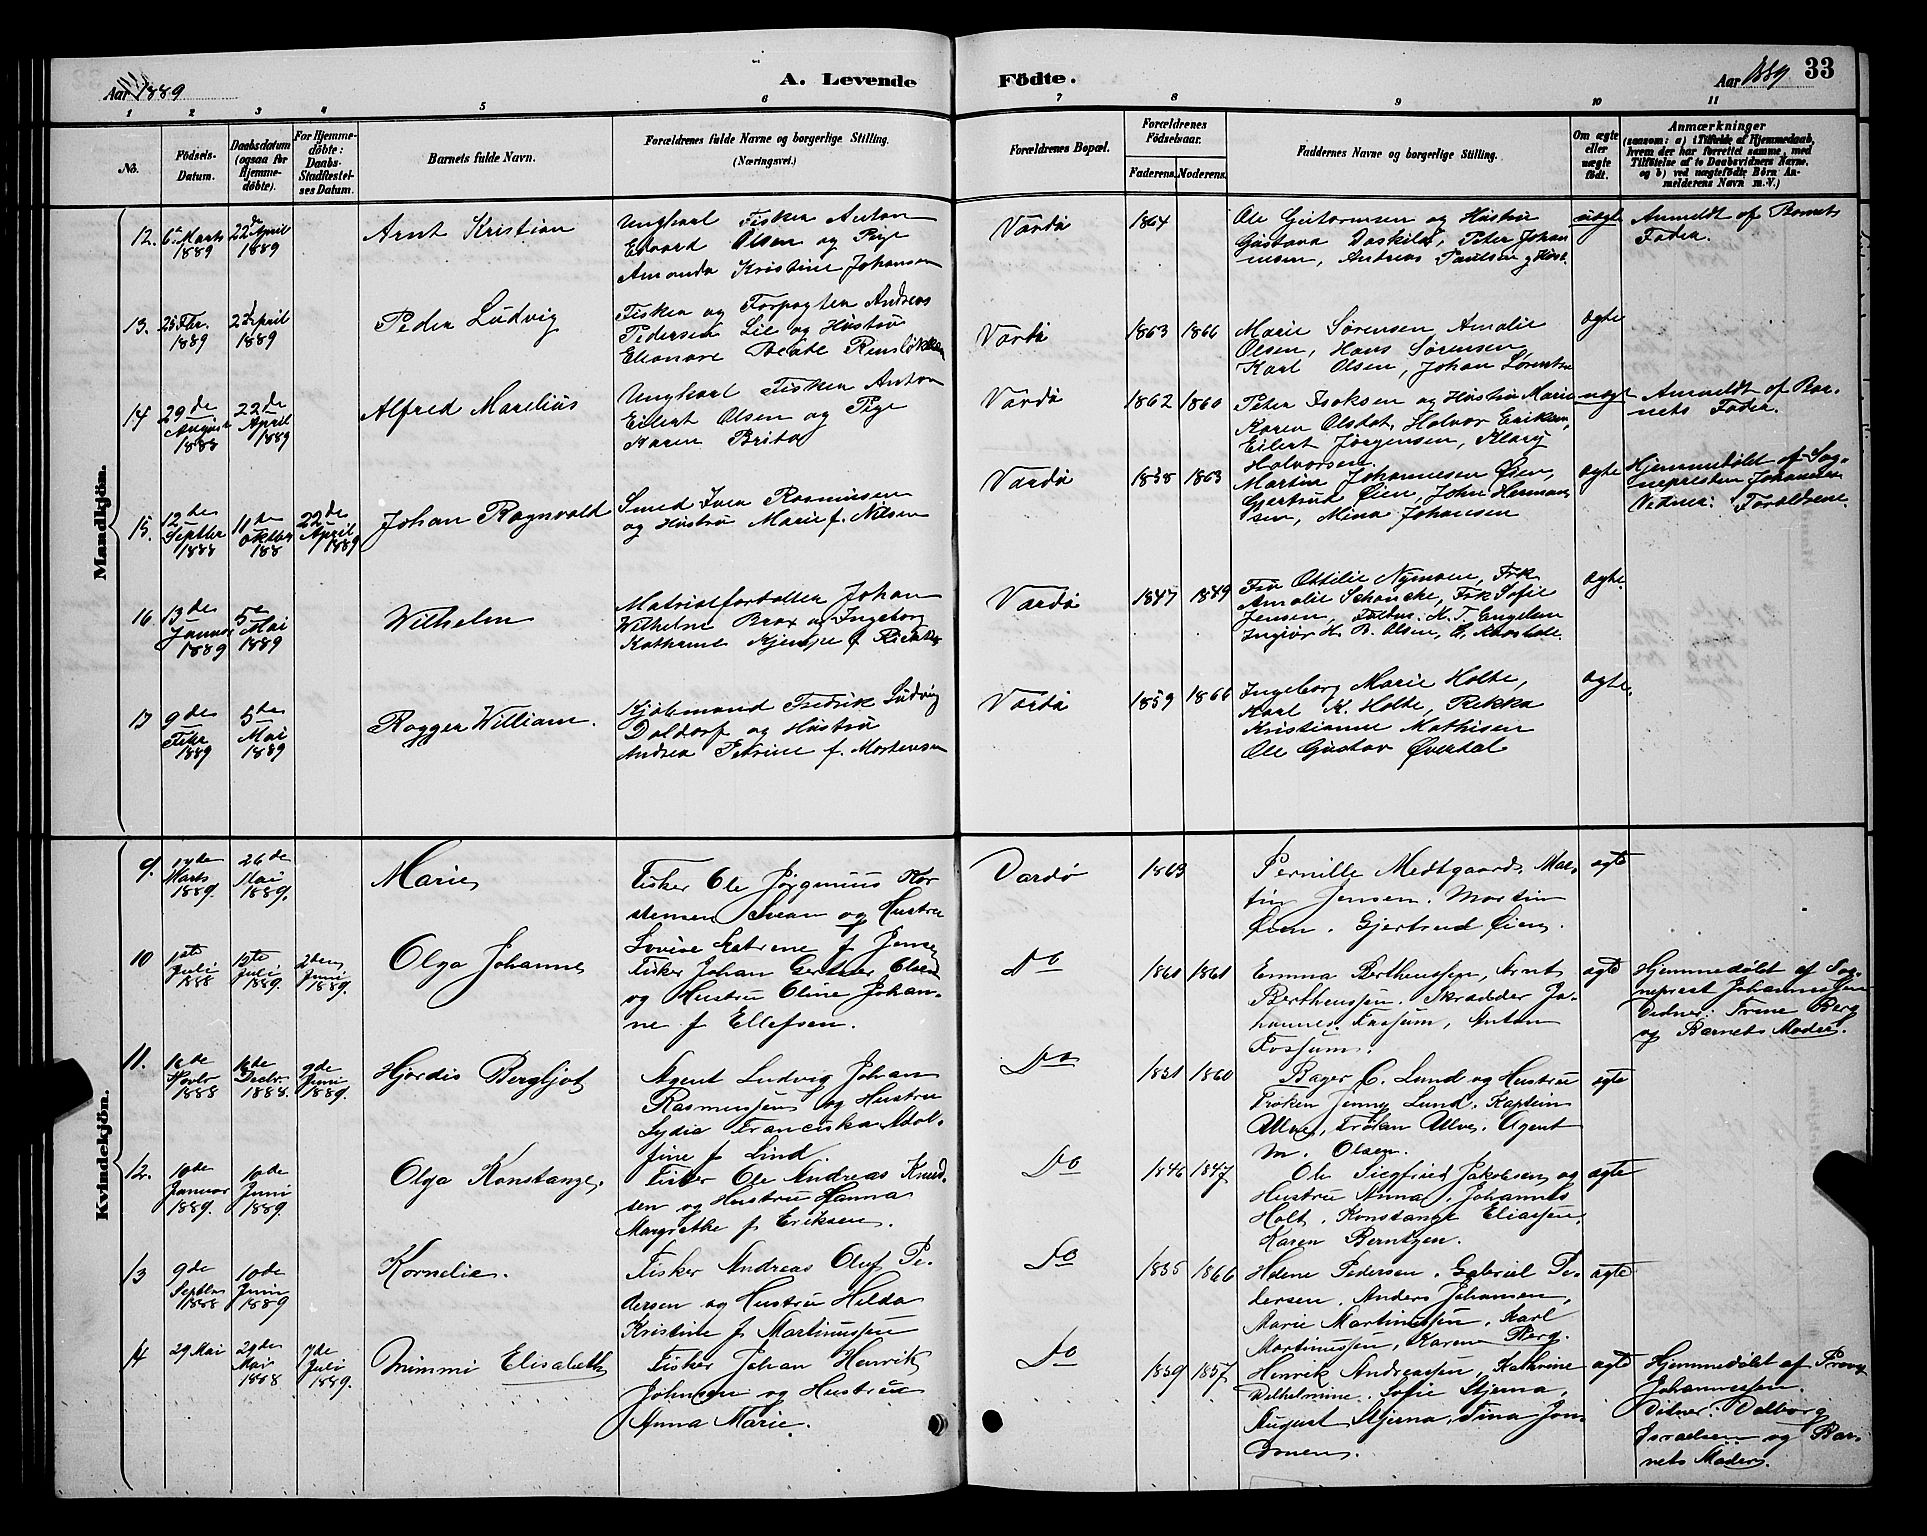 Aar 1889
A. Levende
Fødte.
Aar 1889
33
1 2 3 4 5 6 7 8 9 10 11
No.
Fødsels-
Datum.
Daabsdatum
(ogsaa for
Hjemme-
døbte).
For Hjemme-
døbte:
Daabs-
Stadfæstel-
ses Datum.
Barnets fulde Navn.
Forældrenes fulde Navne og borgerlige Stilling.
(Næringsvei.)
Forældrenes Bopæl.
Forældrenes
Fødselsaar.
Faderens.
Moderens.
Faddernes Navne og borgerlige Stilling.
Om ægte
eller
uægte
født.
Anmærkninger
(saasom: a) i Tilfælde af Hjemmedaab,
hvem der har forrettet samme, med
Tilføielse af to Daabsvidners Navne,
og b) ved uægtefødte Børn An-
melderens Navn m. V.)
Mandkjøn.
12.
6te Marts
1889
22de April
1889
Arnt Kristian
Ungkarl Fisker Anton
Edvard Olsen og Pige
Amanda Kristine Johansen
Vardø
1864
Ole Guttormsen og Hustru
Gustava Daskilds, Peter Johan
nesen, Andreas Paulsen og Hust.
uægte
Anmeldt af Barnets
Fader.
13.
25 Febr.
1889
22de April
1889
Peder Ludvig
Fisker og Forpagter Andreas
Pedersen Lie og Hustru
Eleonore Beate Rensløkken
Vardø
1863 1866
Marie Sørensen, Amalie
Olsen, Hans Sørensen
Karl Olsen, Johan Sørensen
ægte
14
29de
August
1888
22de
April
1889
Alfred Marelius
Ungkarl Fisker Anton
Eilert Olsen og Pige
Karen Brita
Vardø
1862 1860
Peter Isaksen og Hustru Marie
Karen Olsdat, Halvor Eriksen,
Eilert Jørgensen, Klary
Halvorsen
uægte
Anmeldt af Bar-
nets Fader.
15.
12te
Septber
1888
11te
Oktber
188
22de
April
1889
Johan Ragnvald
Smed Iver Rasmussen
og Hustru Marie f. Nilsen
Vardø
1858 1863
Martin Johannesen Øien,
Gjertrud Øien, John Herman
sen, Mina Johansen
ægte
Hjemmedøbt af Sog-
nepresten Johannesen
Vidner: Forældrene.
16.
13de
Januar
1889
5te
Mai
1889
Wilhelm
Materialforvalter Johan
Wilhelm Brox og Ingeborg
Katharine
Vardø
1847 1849
Fru Ottilie Nymoen, Frk
Amalie Schancke, Frk Sofie
Jensen, K. T. Engelsen
Ingvar K. B. Olsen,
ægte.
17
9de
Febr
1889
5te
Mai
1889
Roggen William.
Kjøbmand Fredrik Ludvig
Daldorf og Hustru
Andrea Petrine f. Mortensen
Vardø
1859 1866
Ingeborg Marie Holte,
Karl K. Holte, Rikka
Kristianne Mathisen
Ole Gustav Øverdal
ægte.
Kvindekjøn.
9.
17de
Marts
1889.
26de
Mai
1889.
Marie
Fisker Ole Jørginus Tor
stensen Svean og Hustru
Lovise Katrine f Jensen
Vardø
1863
Pernille Medtgaard, Mar-
tin Jensen. Martin
Øien. Gjertrud Øien.
ægte
10
1ste
Juli
1888
12te
Juli
1889.
2den
Juni
1889.
Olga Johanne
Fisker Johan Gertner Olsen
og Hustru Oline Johan-
ne f Ellefsen.
Do
1861 1861
Emma Bertheussen, Arnt
Bertheussen. Skrædder Jo-
hannes Fossum, Anton
Fossum.
ægte
Hjemmedøbt af Sog-
neprest Johannessen
Vidner: Trine Berg
og Barnets Moder.
11.
16de
Novbr
1888
16de
Decbr.
1888.
9de
Juni
1889.
Hjørdis Bergljot
Agent Ludvig Johan
Rasmussen og Hustru
Lydia Franciska Adol-
fine f Lind.
Do
1851 1860
Bager C. Lund og Hustru
Frøken Jenny Lund. Kaptein
Ulve, Frøken Ulve. Agent
M. Olsen.
ægte
12.
10de
Januar
1889.
10de
Juni
1889.
Olga Konstanze.
Fisker Ole Andreas Knud-
sen og Hustru Hanna
Margrethe f Eriksen.
Do
1846 1847
Ole Siegfried Jakobsen og
Hustru Anna. Johannes
Holt. Konstanze Eliassen.
Karen Berntzen.
ægte
13
9de
Septbr
1888
10de
Juni
1889
Kornelie.
Fisker Andreas Oluf Pe-
dersen og Hustru Hilda
Kristine f Martinussen
Do
1855 1866
Helene Pedersen. Gabriel Pe-
dersen. Anders Johansen,
Marie Martinussen, Karl
Martinussen, Karen Berg.
ægte
14
29 Mai
29de
Mai
1888
7de
Juli
1889.
Mimmi Elisabeth
Fisker Johan Henrik
Johnsen og Hustru
Anna Marie.
Do
1859 1857
Henrik Andreassen, Kathrine
Wilhelmine. Sofie Stjerna,
August Stjerna, Tina Jon
ægte
Hjemmedøbt af Provst
Johannessen.
Vidner: Valborg
Israelsen og Bar-
nets Moder.